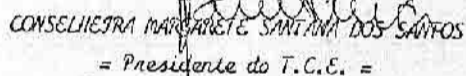 CONSELHEIRA MARGARETE SANTANA DOS SANTOS
= Presidente do T.C.E. =